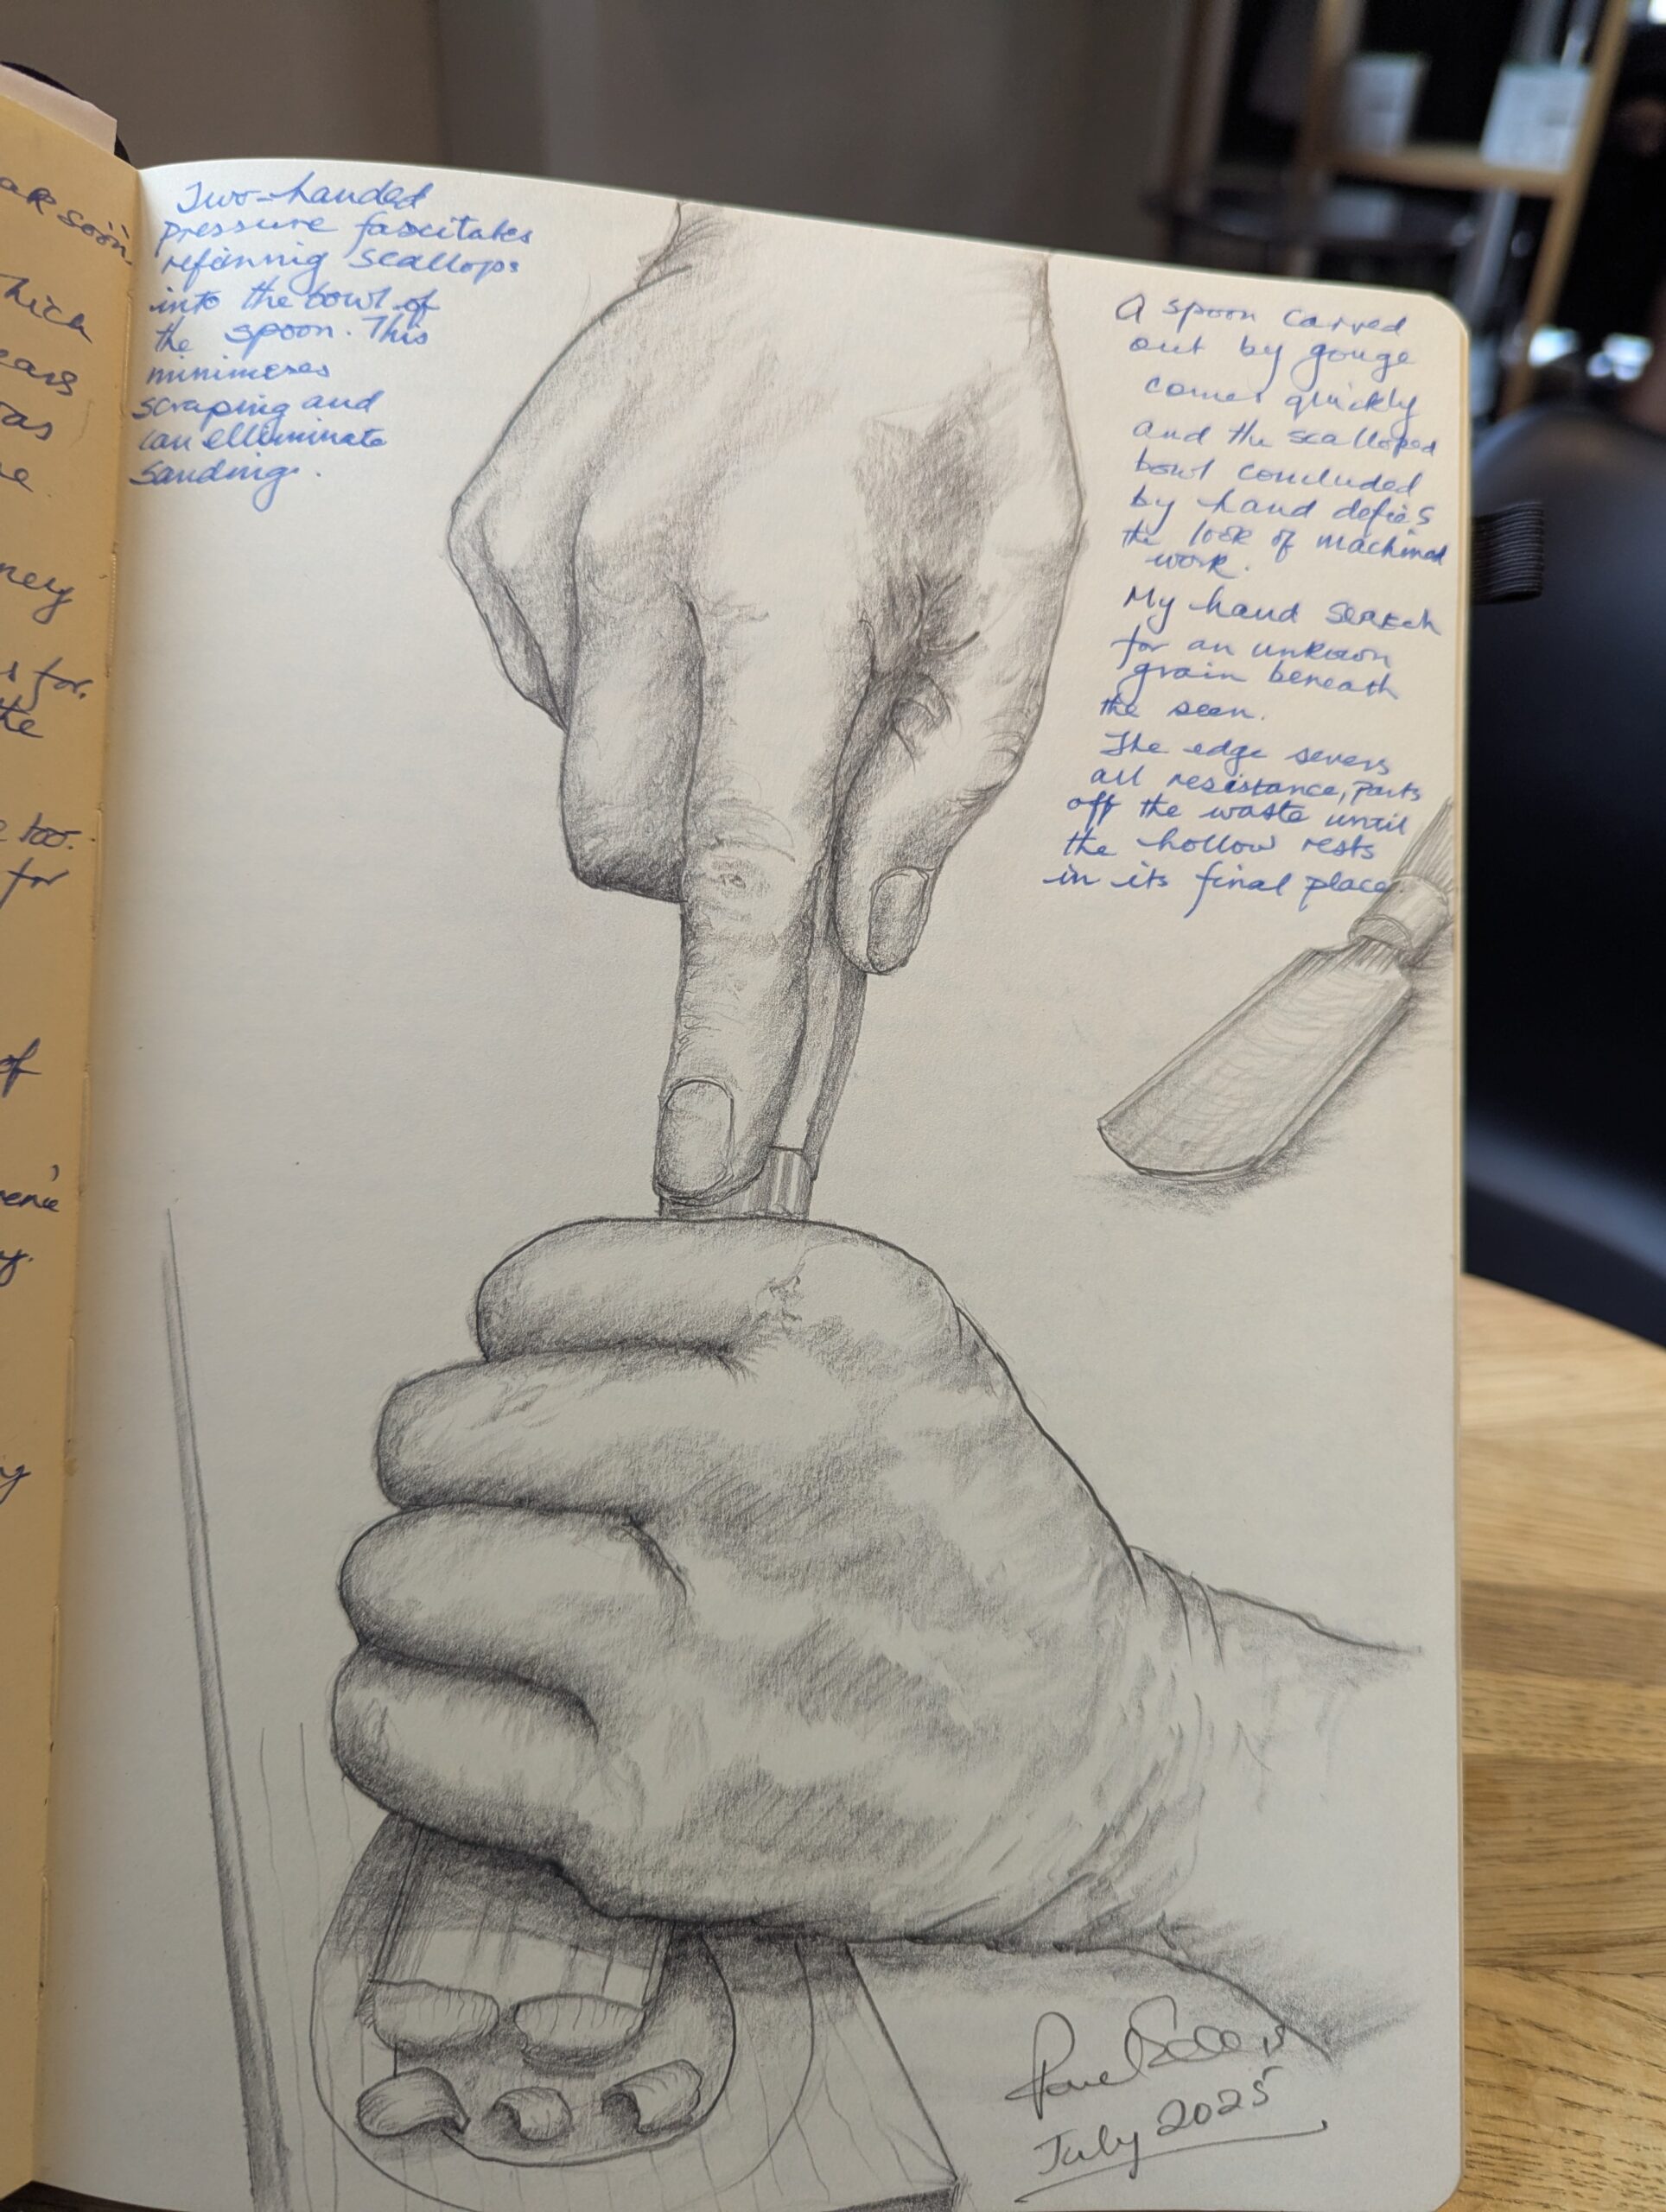 soon
for.
too.
for
of
Two-handed
pressure
refinnig scallops
into the bowl of
the spoon. This
scraping and
can elliminate
sanding.
A spoon carved
out by gouge
comes quickly
and the scalloped
bowl concluded
by hand defies
the look of machined
work.
My hand SEARch
for an unkown
grain beneath
the seen.
The edge severs
all resistance, parts
off the waste until
the hollow rests
in its final place.
Paul Sellers
July 2025